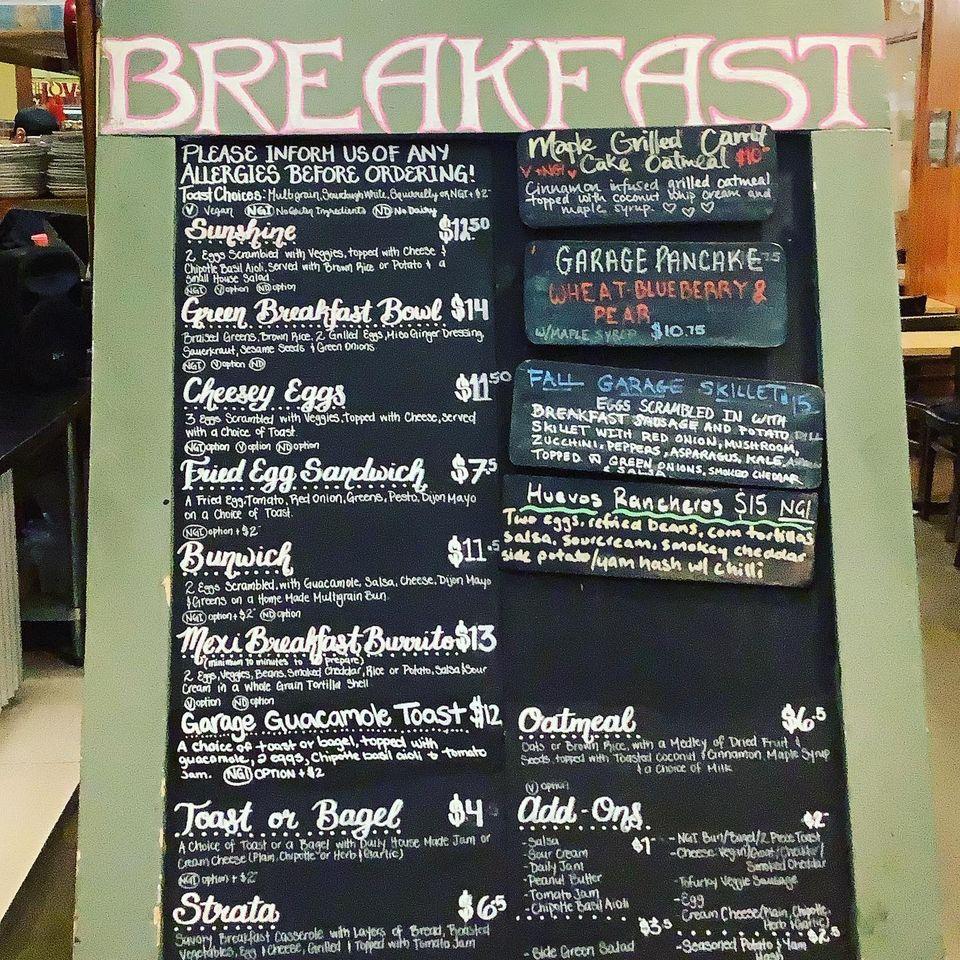 BREAKFAST
PLEASE INFORM US OF ANY
ALLERGIES BEFORE ORDERING!
Toast Choices: Multigrain, Sourdough White, Squirrelly or NGI + $2
(V) Vegan (NGI) No Gluty Ingredients (ND) No Dairy
Sunshine $11.50
2 Eggs Scrambled with Veggies, topped with Cheese &
Chipotle Basil Aioli, Served with Brown Rice or Potato & a
Small House Salad
(NGI) (V)option (ND)option
Green Breakfast Bowl $14
Braised Greens, Brown Rice, 2 Grilled Eggs, Miso Ginger Dressing
Sauerkraut, Sesame Seeds & Green Onions
(NGI) (V)option (ND)
Cheesey Eggs $11.50
3 Eggs Scrambled with Veggies, Topped with Cheese, served
with a choice of Toast
(NGI)option (V)option (ND)option
Fried Egg Sandwich $7.5
A Fried Egg, Tomato, Red Onion, Greens, Pesto, Dijon Mayo
on a Choice of Toast.
(NGI)option + $2
Bunwich $11.5
2 Eggs Scrambled, with Guacamole, Salsa, Cheese, Dijon Mayo
& Greens on a Home Made Multigrain Bun.
(NGI)option + $2 (ND)option
Mexi Breakfast Burrito $13
(minimum 10 minutes to prepare)
2 Eggs, Veggies, Beans, Smoked Cheddar, Rice or Potato, Salsa & Sour
Cream in a Whole Grain Tortilla Shell
(V)option (ND)option
Garage Guacamole Toast $12
A choice of toast or bagel, topped with
guacamole, 2 eggs, Chipotle basil aioli & tomato
Jam. (NGI) OPTION + $2
Toast or Bagel $4
A Choice of Toast or a Bagel with Daily House Made Jam or
Cream Cheese (Plain, Chipotle or Herb & Garlic)
(NGI) option + $2
Strata $6.5
Savory Breakfast Casserole with Layers of Bread, Roasted
Vegetables, Egg & Cheese, Grilled & Topped with Tomato Jam
Maple Grilled Carrot
Cake Oatmeal $10
V + NGI
Cinnamon infused grilled oatmeal
topped with coconut whip cream and
maple syrup.
GARAGE PANCAKE
WHEAT-BLUEBERRY &
PEAR
W/MAPLE SYRUP $10.75
FALL GARAGE SKILLET $15
EGGS SCRAMBLED IN WITH
BREAKFAST SAUSAGE AND POTATO DILL
SKILLET WITH RED ONION, MUSHROOM,
ZUCCHINI, PEPPERS, ASPARAGUS, KALE,
TOPPED W GREEN ONIONS, SMOKED CHEDDAR
Huevos Rancheros $15 NGI
Two eggs, refried beans, corn tortillas
salsa, sour cream, smokey cheddar
side potato/yam hash w/ chilli
Oatmeal $6.5
Oats or Brown Rice, with a Medley of Dried Fruit &
Seeds, topped with Toasted Coconut & Cinnamon, Maple Syrup
& a choice of Milk
(V) option
Add-Ons
$1
- Salsa
- Sour Cream
- Daily Jam
- Peanut Butter
- Tomato Jam
- Chipotle Basil Aioli
$3.5
- Side Green Salad
$2
- NGI Bun/Bagel/2 Piece Toast
- Cheese Vegan/Goat/Cheddar/
Smoked Cheddar
- Tofurky Veggie Sausage
- Egg
- Cream Cheese/Plain, Chipotle,
Herb & Garlic
$2.5
- Seasoned Potato & Yam
Hash